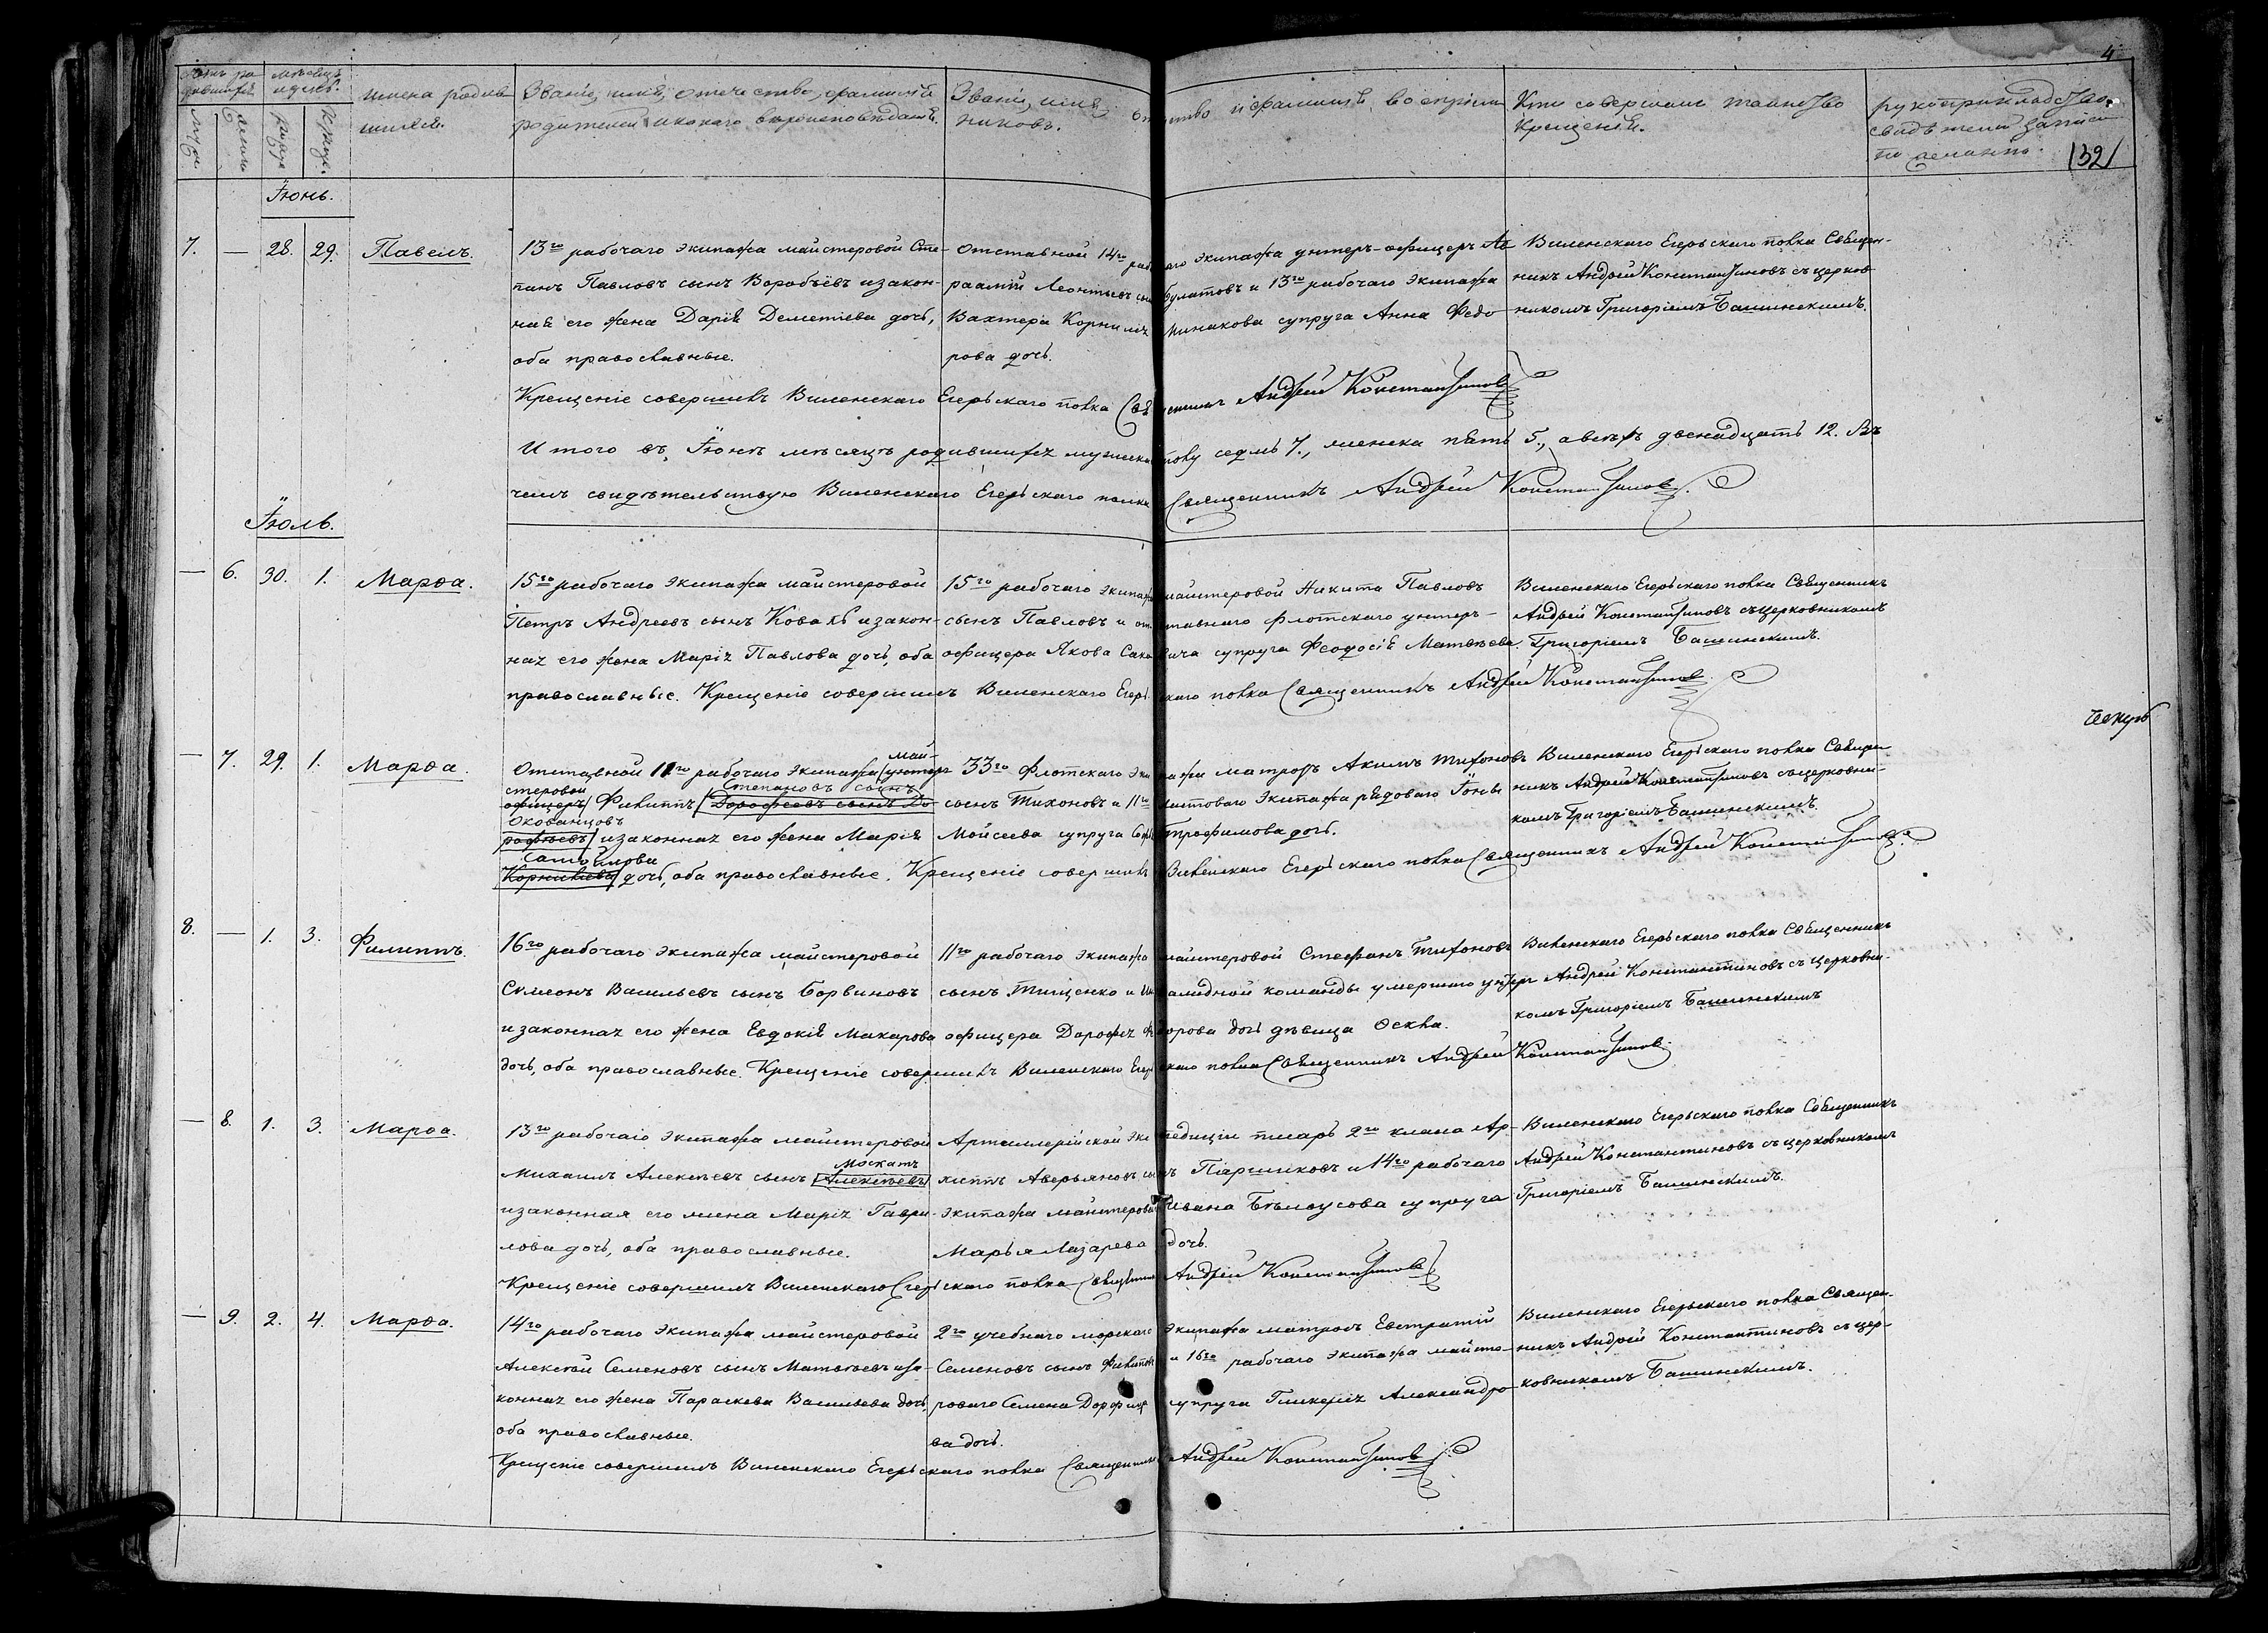 4
132
имена родив-
шихся.
Званіе, имя, отечество, фамилія
родителей и какого вѣроисповѣданія.
Званіе, имя, отчество и фамилія воспріем-
никовъ.
Кто совершалъ таинство
крещенія.
рукоприкладство
свидѣтелей записи
по желанію.
Іюнь.
7. — 28. 29. Павелъ.
13го рабочаго экипажа майстеровой Сте-
панъ Павловъ сынъ Воробьёвъ и закон-
ная его жена Дарія Деметіева дочь,
оба православные.
Отставной 14го рабочаго экипажа унтеръ-офицеръ Ав
раамій Леонтьевъ сынъ Булатовъ и 13го рабочаго экипажа
Вахтера Корнилъ Минакова супруга Анна Федо
рова дочь.
Виленскаго Егерьскаго полка Священ-
никъ Андрей Константиновъ съ церков
никомъ Григоріемъ Башинскимъ.
Крещеніе совершилъ Виленскаго Егерьскаго полка Священникъ Андрей Константиновъ
Итого въ Іюнѣ мѣсяцѣ родившихся мужеска полу седмь 7., женска пять 5., а всѣхъ двенадцать 12. Въ
чемъ свидѣтельствую Виленскаго Егерьскаго полка Священникъ Андрей Константиновъ.
Іюль.
— 6. 30. 1. Марѳа.
15го рабочаго экипажа майстеровой
Петръ Андреевъ сынъ Коваль и закон-
ная его жена Марія Павлова дочь, оба
православные.
15го рабочаго экипажа майстеровой Никита Павловъ
сынъ Павловъ и отставнаго флотскаго унтеръ-
офицера Якова супруга Феодосія Матвѣева.
Виленскаго Егерьскаго полка Священникъ
Андрей Константиновъ съ церковникомъ
Григоріемъ Башинскимъ.
Крещеніе совершилъ Виленскаго Егерьскаго полка Священникъ Андрей Константиновъ
— 7. 29. 1. Марѳа.
Отставной 11го рабочаго экипажа унтеръ май-
стеровой
офицеръ Филиппъ Дорофеевъ сынъ До Степановъ сынъ
Окованцовъ
рофѣевъ и законная его жена Марія
Самойлова
Корнилѣева дочь, оба православные.
33го Флотскаго экипажа матрозъ Акимъ Тихоновъ
сынъ Тихоновъ и 11го экипажа рядоваго
Моисеева супруга Трофимова дочь.
Виленскаго Егерьскаго полка Священ
никъ Андрей Константиновъ съ церковни-
комъ Григоріемъ Башинскимъ.
Крещеніе совершилъ Виленскаго Егерьскаго полка Священникъ Андрей Константиновъ.
8. — 1. 3. Филиппъ.
16го рабочаго экипажа майстеровой
Сѵмеонъ Васильевъ сынъ Борвиновъ
и законная его жена Евдокія Макарова
дочь, оба православные.
11го рабочаго экипажа майстеровой Стефанъ Тихоновъ
сынъ Тищенко и Инвалидной команды умершаго унтеръ
офицера Дорофея Федорова дочь дѣвица Оекла.
Виленскаго Егерьскаго полка Священникъ
Андрей Константиновъ съ церковни-
комъ Григоріемъ Башинскимъ
Крещеніе совершилъ Виленскаго Егерьскаго полка Священникъ Андрей Константиновъ
— 8. 1. 3. Марѳа.
13го рабочаго экипажа майстеровой
Михаилъ Алексѣевъ сынъ Алексѣевъ Москатъ
и законная его жена Марія Гаври-
лова дочь, оба православные.
Артиллерійской экспедиціи писарь 2го класа Ар-
хиппъ Аверьяновъ сынъ Паршиковъ и 14го рабочаго
экипажа майстероваго Ивана Бѣлоусова супруга
Марья Лазарева дочь.
Виленскаго Егерьскаго полка Священникъ
Андрей Константиновъ съ церковникомъ
Григоріемъ Башинскимъ.
Крещеніе совершилъ Виленскаго Егерьскаго полка Священникъ Андрей Константиновъ
— 9. 2. 4. Марѳа.
14го рабочаго экипажа майстеровой
Алексѣй Семеновъ сынъ Матвѣевъ и за-
конная его жена Параскева Васильева дочь,
оба православные.
2го учебнаго морскаго экипажа матрозъ Евстратій
Семеновъ сынъ и 16го рабочаго экипажа майсте-
роваго Семена супруга Гликерія Александро
ва дочь.
Виленскаго Егерьскаго полка Священ-
никъ Андрей Константиновъ съ цер-
ковникомъ Башинскимъ.
Крещеніе совершилъ Виленскаго Егерьскаго полка Священникъ Андрей Константиновъ